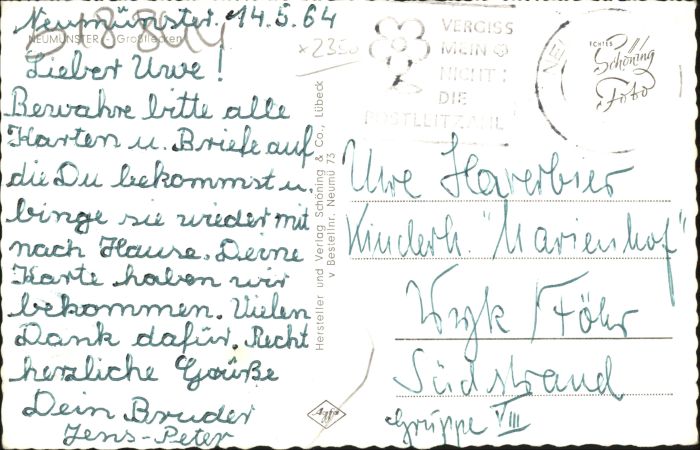 Neumünster. 14.5.64
NEUMÜNSTER - Großflecken
Lieber Uwe!
Bewahre bitte alle
Karten u. Briefe auf
die Du bekommst u.
binge sie wieder mit
nach Hause. Deine
Karte haben wir
bekommen. Vielen
Dank dafür. Recht
herzliche Gürße
Dein Bruder
Jens-Peter
Hersteller und Verlag Schöning & Co., Lübeck
v Bestellnr. Neumü 73
Agfa
VERGISS
MEIN
NICHT:
DIE
POSTLEITZAHL
ECHTES
Schöning
Foto
Uwe Haverbier
Kinderh. "Marienhof"
Wyk / Föhr
Südstrand
Gruppe VIII